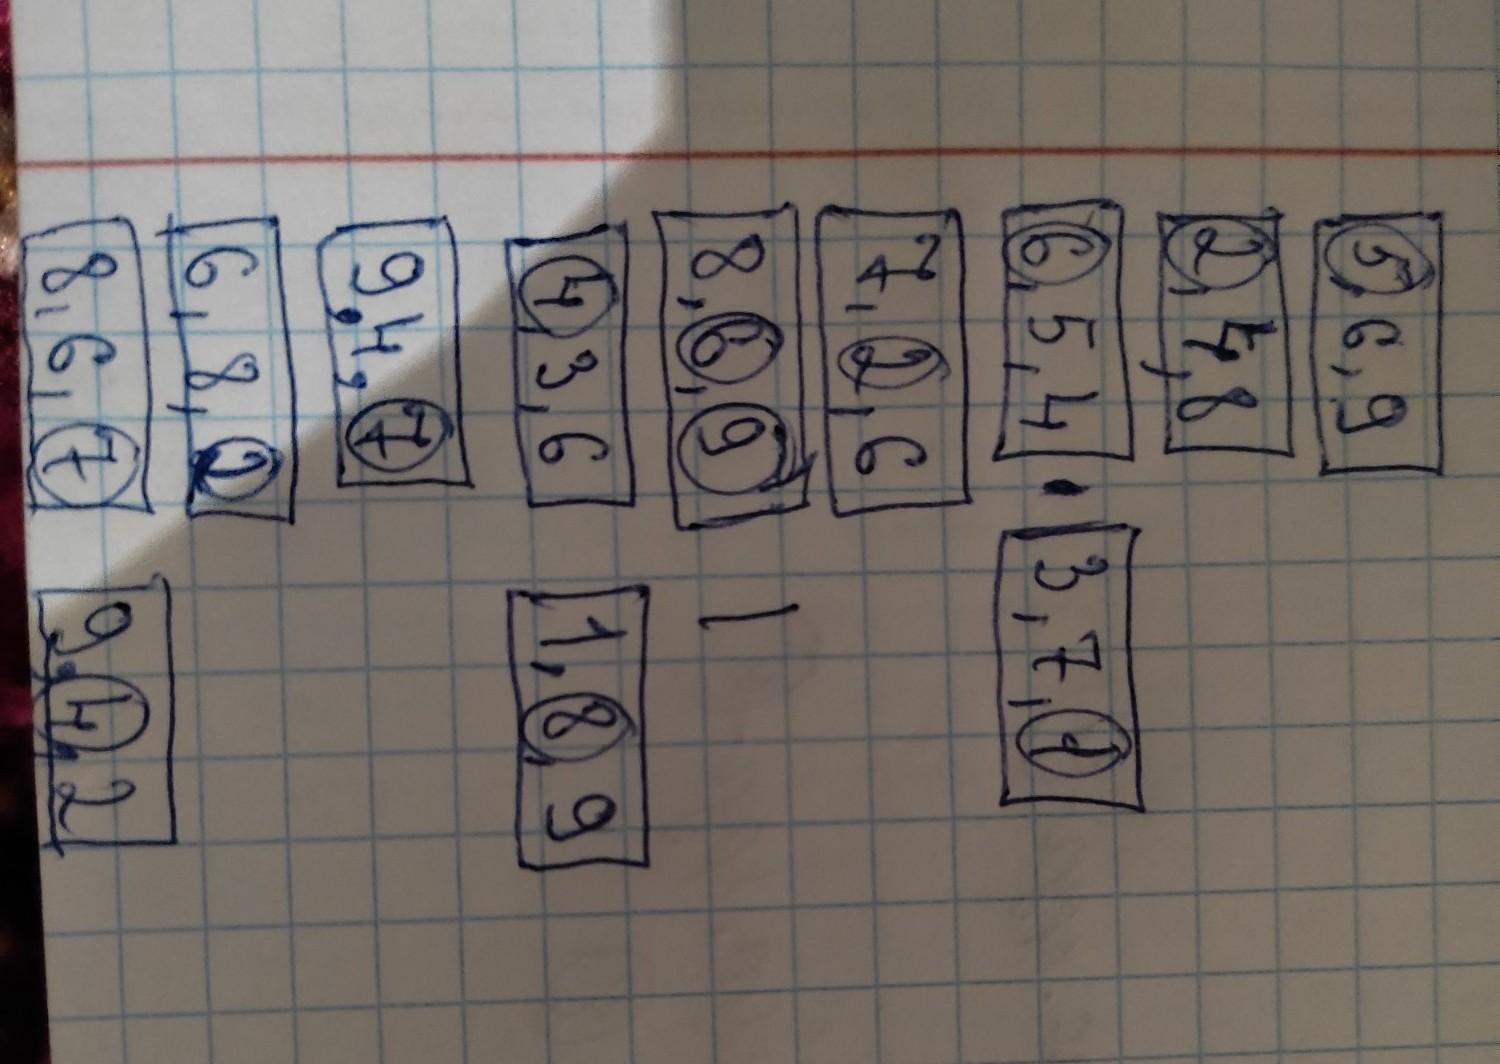 5,6,9
2,7,8
6,5,4 . 3,7,1
7,2,6
8,6,9 |
4,3,6 1,8,9
9,4,7
6,8,
8,6,7 9,4,2